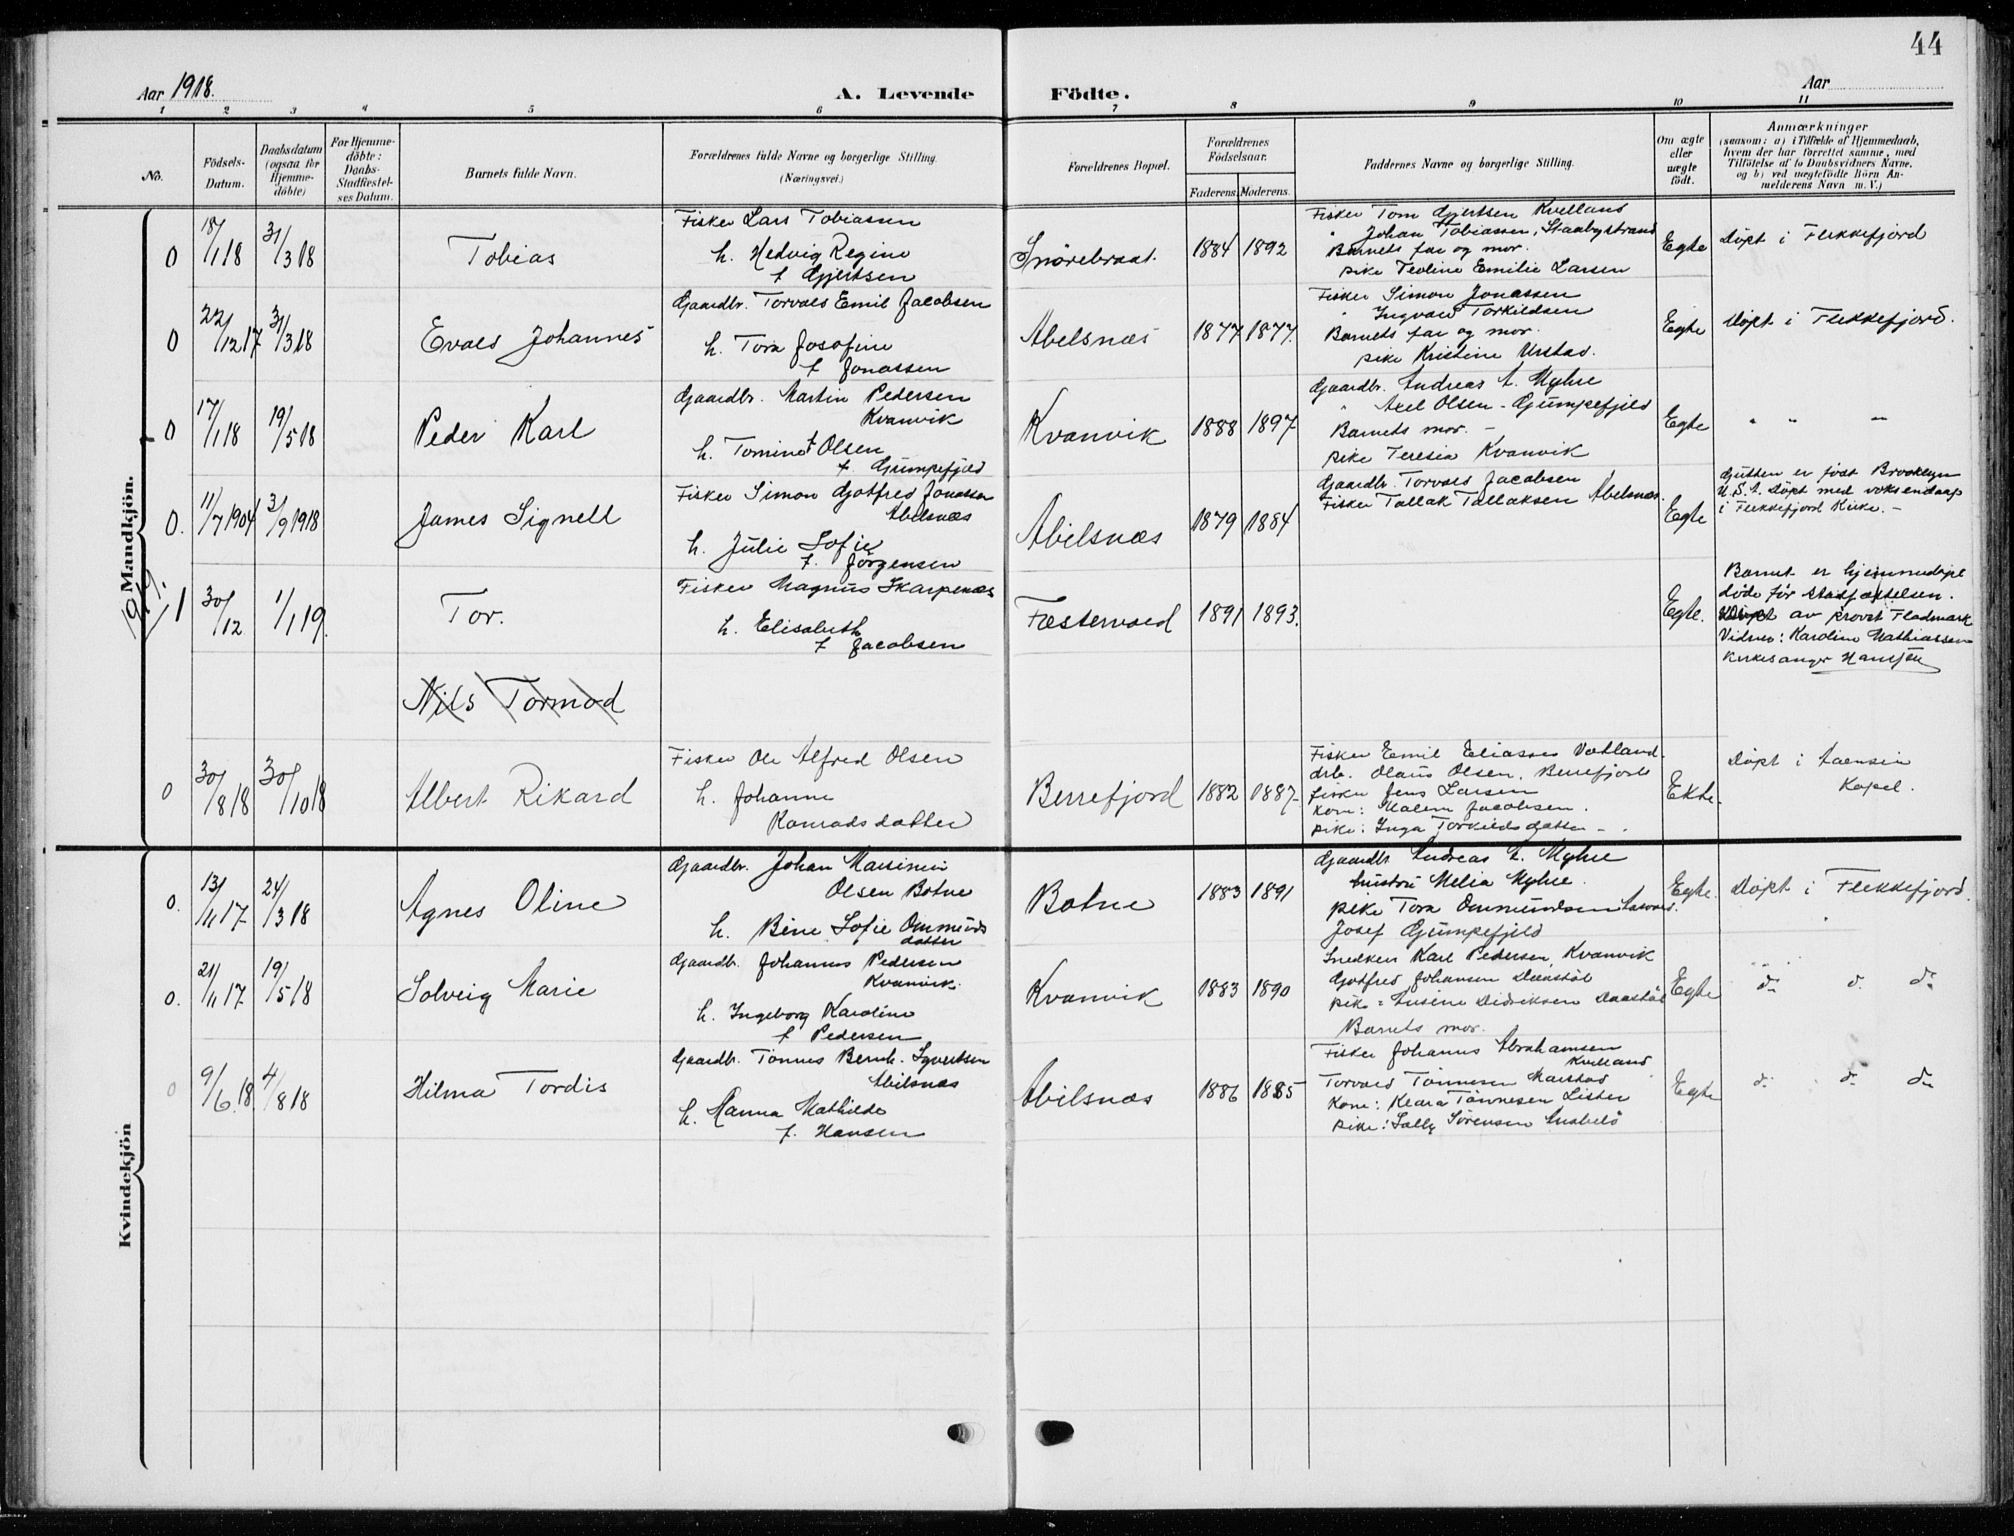 44
Aar 1918.
A. Levende Födte.
Aar
1 2 3 4 5 6 7 8 9 10 11
No.
Födsels-Datum.
Daabsdatum (ogsaa for Hjemme-döbte)
For Hjemme-döbte: Daabs-Stadfæstel-ses Datum.
Barnets fulde Navn.
Forældrenes fulde Navne og borgerlige Stilling.
(Næringsvei.)
Forældrenes Bopæl.
Forældrenes Födselsaar.
Faderens. Moderens.
Faddernes Navne og borgerlig Stilling.
Om ægte eller uægte födt.
Anmærkninger
(saasom: a) i Tilfælde af Hjemmedaab,
hvem der har forrettet samme, med
Tilföielse af to Daabsvidners Navne.
og b) ved uægtefödte Börn An-
melderens Navn m. V.)
Mandkjön.
0 18/1 18 31/3 18 Tobias
Fisker Lars Tobiassen
h. Hedvig Regine
f. Gjertsen
Snörebraat. 1884 1892
Fisker Tom Gjertsen Kvelland
" Johan Tobiassen, Staabystrand
Barnets far og mor.
pike Teoline Emilie Larsen
Egte Döpt i Flekkefjord
0 22/12 17 31/3 18 Evald Johannes
Gaardbr. Torvald Emil Jacobsen
h. Tora Josefine
f. Jonassen
Abelsnæs 1877 1877.
Fisker Simon Jonassen
" Ingvald Torkildsen
Barnets far og mor.
pike Kristine Urstad.
Egte Döpt i Flekkefjord.
0 17/1 18 19/5 18 Peder Karl
Gaardbr. Martin Pedersen
Kvanvik
h. Tomine Olsen
f. Gumpefjeld
Kvanvik 1888 1897
Gaardbr. Andreas A. Myhre
" Axel Olsen - Gumpefjeld
Barnets mor. -
pike Teresia Kvanvik
Egte " " "
0. 11/7 1904 3/9 1918 James Signell
Fisker Simon Gotfred Jonassen
Abelsnæs
h. Julie Sofie
f. Jörgensen
Abelsnæs 1879 1884
Gaardbr. Torvald Jacobsen
Fisker Tallak Tallaksen Abelsnæs.
Egte
Gutten er födt Brooklyn
U.S.A. Döpt med voksendaap
i Flekkefjord Kirke. -
1919.
1 30/12 1/1 19. Tor.
Fisker Magnus Skarpenæs
h. Elisabeth
f. Jacobsen
Fæstervold 1891 1893.
Egte.
Barnet er hjemmedöpt
döde för stadfæstelsen.
Döpt av provst Flodmark
Vidner: Karoline Mathiassen
Kirkesanger Hansen
Nils Tormod
0 30/8 18 30/10 18 Albert Rikard
Fisker Ole Alfred Olsen
h. Johanne
Konradsdatter
Berrefjord 1882 1887.
Fisker Emil Eliassen Vatland.
drb. Olaus Olsen, Berrefjord
fisker Jens Larsen
Kone: Malene Jacobsen.
pike: Inga Torkildsdatter -.
Ekte. Döpt i
Kapel.
Kvindekjön
0. 13/11 17. 24/3 18 Agnes Oline
Gaardbr. Johan Marsinius
Olsen Botne
h. Bine Sofie Ommunds
datter
Botne 1883 1891
Gaardbr Andreas A. Myhre
hustru Melia Myhre.
pike Tora Ommundsen
Josef Gumpefjeld
Egte. Döpt i Flekkefjord.
0. 21/11 17. 19/5 18 Solveig Marie
Gaardbr. Johannes Pedersen
Kvanvik.
h. Ingeborg Karoline
f. Pedersen
Kvanvik 1883 1890
Snedker Karl Pedersen, Kvanvik
Gotfred Johansen Daastöl
pike: Susene Didriksen Daastöl
Barnets mor.
Egte do do do
0 9/6 18. 4/8 18 Hilma Tordis
Gaardbr. Tönnes Bernh. Syvertsen
Abelsnæs
h. Hanna Mathilde
f. Hansen
Abelsnæs 1886 1885
Fisker Johannes Abrahamsen
Kvelland
Torvald Tönnesen Marstad
Kone: Klara Tönnesen Lister
pike: Sally Sörensen Anabelö
Egte do do do